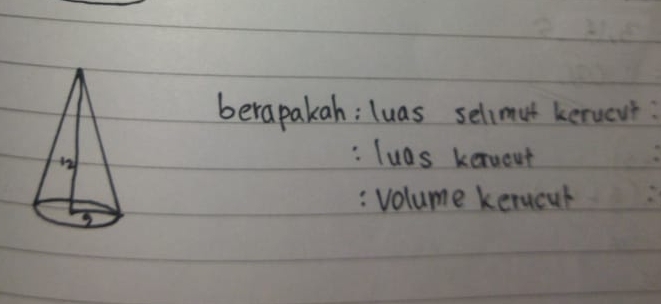 berapakah : luas selimut kerucut :
: luas kerucut :
: Volume kerucut :
12